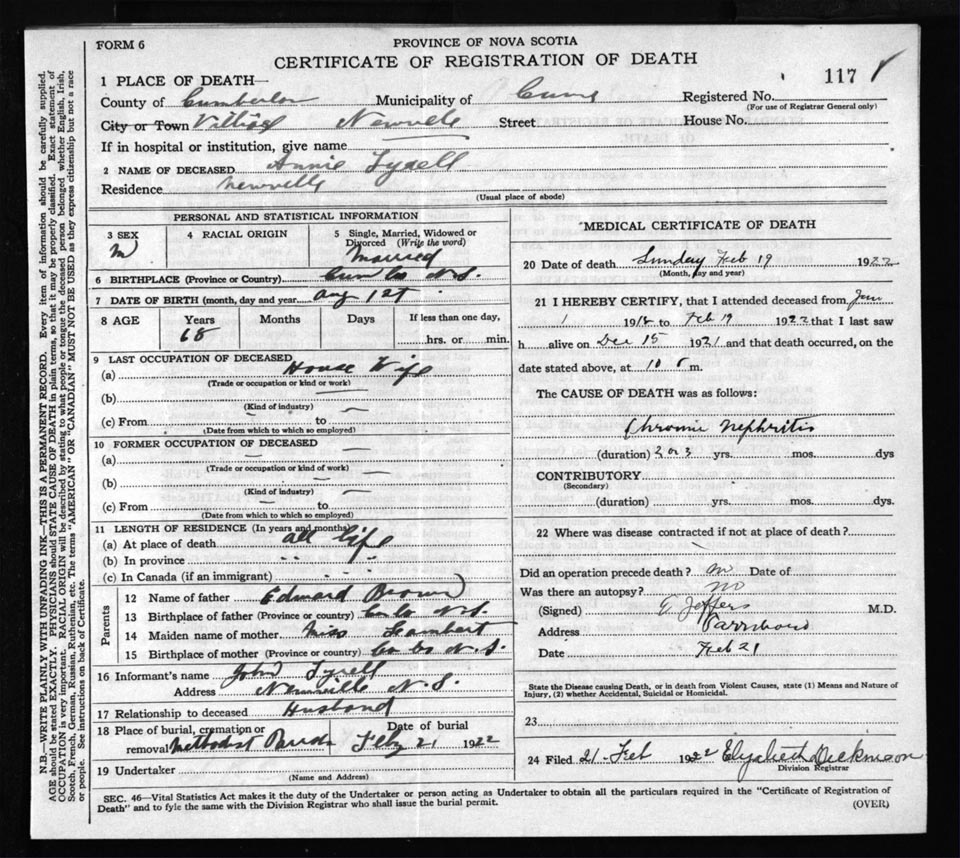 FORM 6
PROVINCE OF NOVA SCOTIA
CERTIFICATE OF REGISTRATION OF DEATH
117
1 PLACE OF DEATH—
County of Cumberlan Municipality of Cum Registered No.
(For use of Registrar General only)
City or Town Village Newville Street House No.
If in hospital or institution, give name
2 NAME OF DECEASED Annie Tyrell
Residence Newville
(Usual place of abode)
PERSONAL AND STATISTICAL INFORMATION
3 SEX 4 RACIAL ORIGIN 5 Single, Married, Widowed or
Divorced (Write the word)
M Married
6 BIRTHPLACE (Province or Country) Cum Co N.S.
7 DATE OF BIRTH (month, day and year) Aug 1st
8 AGE Years Months Days If less than one day,
68 hrs. or min.
9 LAST OCCUPATION OF DECEASED
(a) House Wife
(Trade or occupation or kind or work)
(b) —
(Kind of industry)
(c) From to —
(Date from which to which so employed)
10 FORMER OCCUPATION OF DECEASED
(a) — —
(Trade or occupation or kind of work)
(b) — —
(Kind of industry)
(c) From — to —
(Date from which to which so employed)
11 LENGTH OF RESIDENCE (In years and months)
(a) At place of death all life
(b) In province " "
(c) In Canada (if an immigrant) " "
Parents
12 Name of father Edward Brown
13 Birthplace of father (Province or country) Co N.S.
14 Maiden name of mother Miss Lambert
15 Birthplace of mother (Province or country) Co N.S.
16 Informant's name John Tyrell
Address Newville N.S.
17 Relationship to deceased Husband
18 Place of burial, cremation or Date of burial
removal Methodist Feby 21 1922
19 Undertaker
(Name and Address)
MEDICAL CERTIFICATE OF DEATH
20 Date of death Sunday Feb 19 1922
(Month, day and year)
21 I HEREBY CERTIFY, that I attended deceased from Jan
1 1918 to Feb 19 1922 that I last saw
h alive on Dec 15 1921 and that death occurred, on the
date stated above, at 10 m.
The CAUSE OF DEATH was as follows:
Chronic Nephritis
(duration) 2 or 3 yrs. mos. dys
CONTRIBUTORY
(Secondary)
(duration) yrs. mos. dys.
22 Where was disease contracted if not at place of death?
Did an operation precede death? no Date of
Was there an autopsy? no
(Signed) Jeffers M.D.
Address Parrsboro
Date Feb 21
State the Disease causing Death, or in death from Violent Causes, state (1) Means and Nature of
Injury, (2) whether Accidental, Suicidal or Homicidal.
23
24 Filed 21 Feb 1922 Elizabeth Dickinson
Division Registrar
SEC. 46—Vital Statistics Act makes it the duty of the Undertaker or person acting as Undertaker to obtain all the particulars required in the "Certificate of Registration of
Death" and to fyle the same with the Division Registrar who shall issue the burial permit.
(OVER)
N.B.—WRITE PLAINLY WITH UNFADING INK—THIS IS A PERMANENT RECORD. Every item of information should be carefully supplied.
AGE should be stated EXACTLY. PHYSICIANS should STATE CAUSE OF DEATH in plain terms, so that it may be properly classified. Exact statement of
OCCUPATION is very important. RACIAL ORIGIN will be described by stating to what people or tongue the deceased person belonged whether English, Irish,
Scotch, French, German, Russian, Ruthenian, etc. The terms "AMERICAN" OR "CANADIAN" MUST NOT BE USED as they express citizenship but not a race
or people. See instructions on back of Certificate.